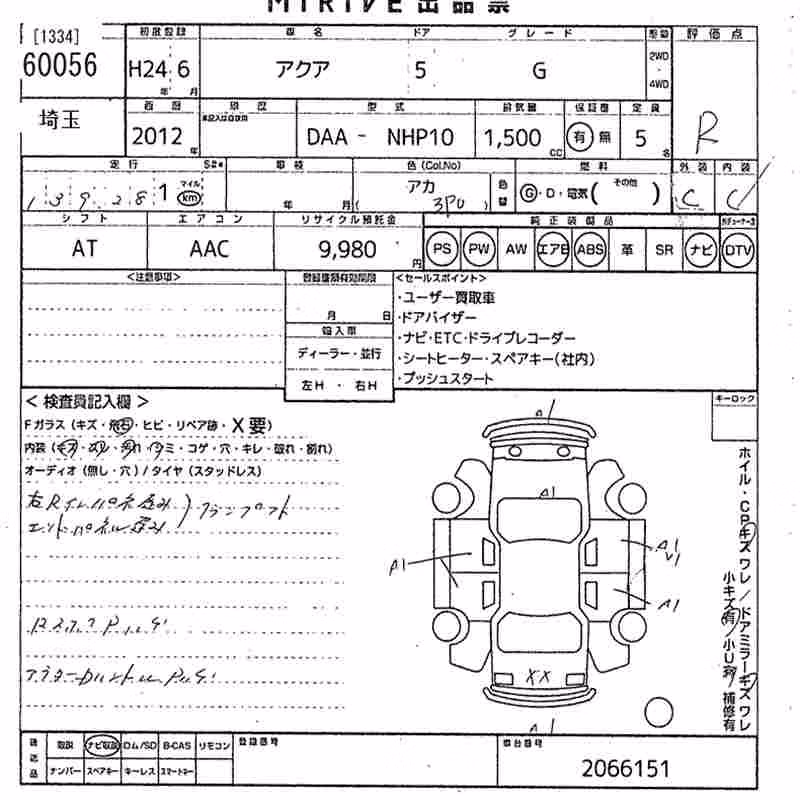 MIRIVE 出品票
[1334]
60056
埼玉
初度登録
H24 6
年 月
車名 ドア グレード
アクア 5 G
駆動
2WD
・
4WD
評価点
R
西暦
2012
年
車歴
未記入は自家用
型式
DAA - NHP10
排気量
1,500
CC
保証書
有 無
定員
5
名
走行
139281
マイル
km
車検
年 月
色 (Col.No)
アカ
( 3P0 )
色替
燃料
G・D・電気( その他 )
外装 内装
C C
シフト
AT
エアコン
AAC
リサイクル預託金
9,980
円
純正装備品
PS PW AW エアB ABS 革 SR ナビ DTV
<注意事項>
登録書類有効期限
月 日
輸入車
ディーラー・並行
左H ・ 右H
<セールスポイント>
・ユーザー買取車
・ドアバイザー
・ナビ・ETC・ドライブレコーダー
・シートヒーター・スペアキー(社内)
・プッシュスタート
<検査員記入欄>
Fガラス (キズ・飛石・ヒビ・リペア跡・X要)
内装 (キズ・スレ・汚れ・シミ・コゲ・穴・キレ・破れ・割れ)
オーディオ (無し・穴) / タイヤ (スタッドレス)
キーロック
ホイル・CPキズ ワレ / ドアミラーキズ ワレ
小キズ有 / 小U有 / 補修有
A1
A1
A1
A1
A1
XX
A1
後送品
取説 ナビ取説 ロム/SD B-CAS リモコン
ナンバー スペアキー キーレス スマートキー
登録番号
車台番号
2066151